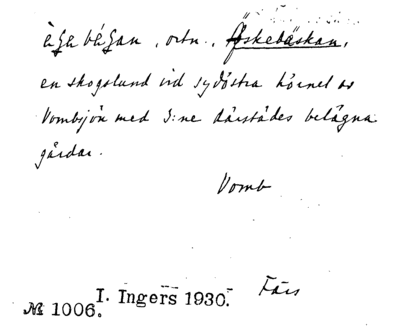 àga bägan, ortn., Äskebäskan,
en skogslund vid sydöstra hörnet av
Vombsjön med 3:ne därstädes belägna
gårdar.
Vomb
I. Ingers 1930. Färs
№ 1006.